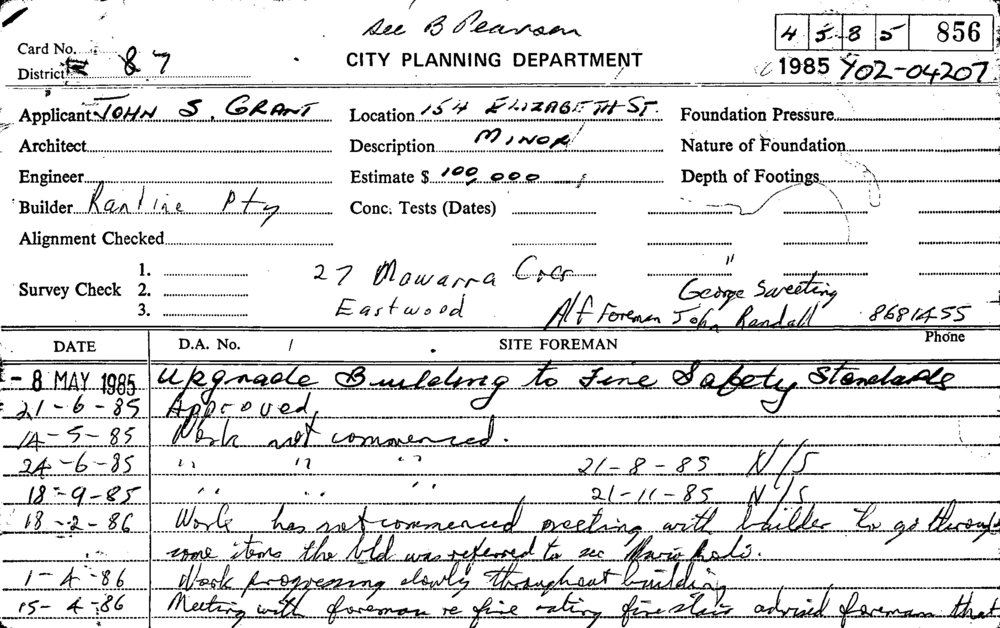 see B Pearson
4 5 8 5 856
Card No.
CITY PLANNING DEPARTMENT
District 87
1985 Y02-04207
Applicant JOHN S. GRANT Location 154 ELIZABETH ST. Foundation Pressure
Architect Description MINOR Nature of Foundation
Engineer Estimate $ 100,000 Depth of Footings
Builder Ranline Pty Conc. Tests (Dates)
Alignment Checked
1.
Survey Check 2.
3.
27 Mowarra Cres "
George Sweeting
Eastwood Alf Foreman John Randall 8681455
Phone
DATE D.A. No. / SITE FOREMAN
- 8 MAY 1985 Upgrade Building to Fire Safety Standards
21-6-85 Approved,
14-5-85 Work not commenced.
24-6-85 " " " 21-8-85 N/S
18-9-85 " " " 21-11-85 N/S
18-2-86 Work has not commenced meeting with builder to go through
some items the bld was referred to see Mario
1-4-86 Work progressing slowly throughout building
15-4-86 Meeting with foreman re fire rating fire stair advised foreman that